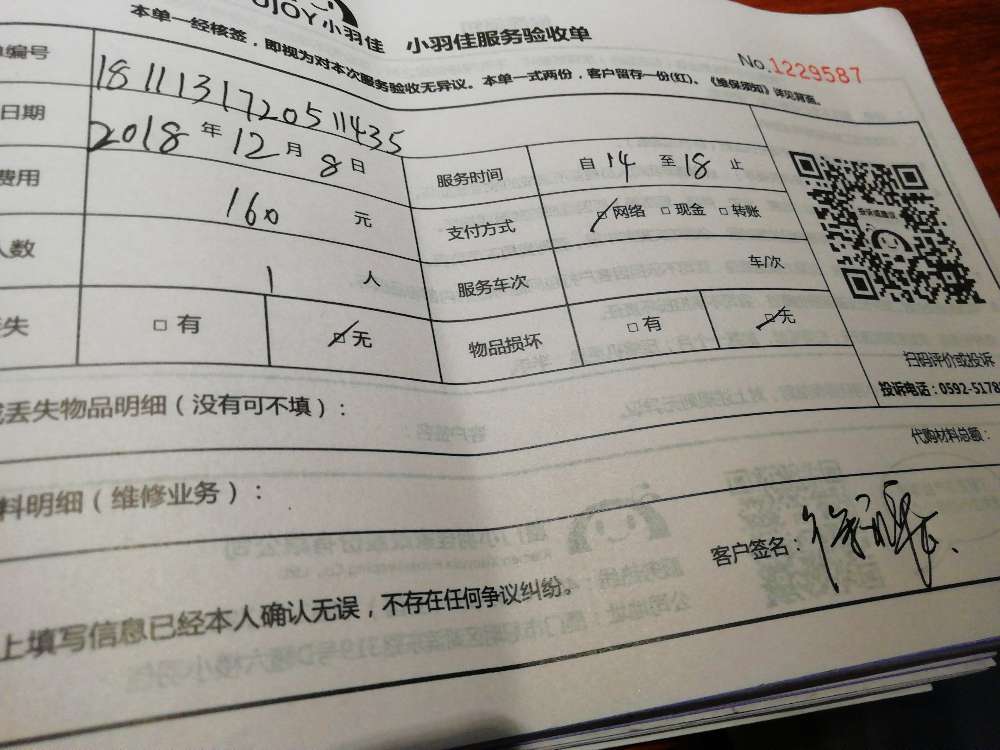 UJOY小羽佳 小羽佳服务验收单
本单一经核签，即视为对本次服务验收无异议。本单一式两份，客户留存一份(红)。《维保须知》详见背面。
No.1229587
单编号 181113172051143​5
日期 2018年12月8日 服务时间 自14至18止
费用 160元 支付方式 ☑网络 □现金 □转账
人数 1人 服务车次 车/次
丢失 □有 ☑无 物品损坏 □有 ☑无
扫码评价或投诉
投诉电话：0592-5178
或丢失物品明细（没有可不填）：
代购材料总额：
料明细（维修业务）：
客户签名：
上填写信息已经本人确认无误，不存在任何争议纠纷。